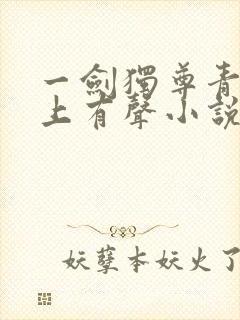 一劍獨尊青
上有聲小說
妖孽本妖火了